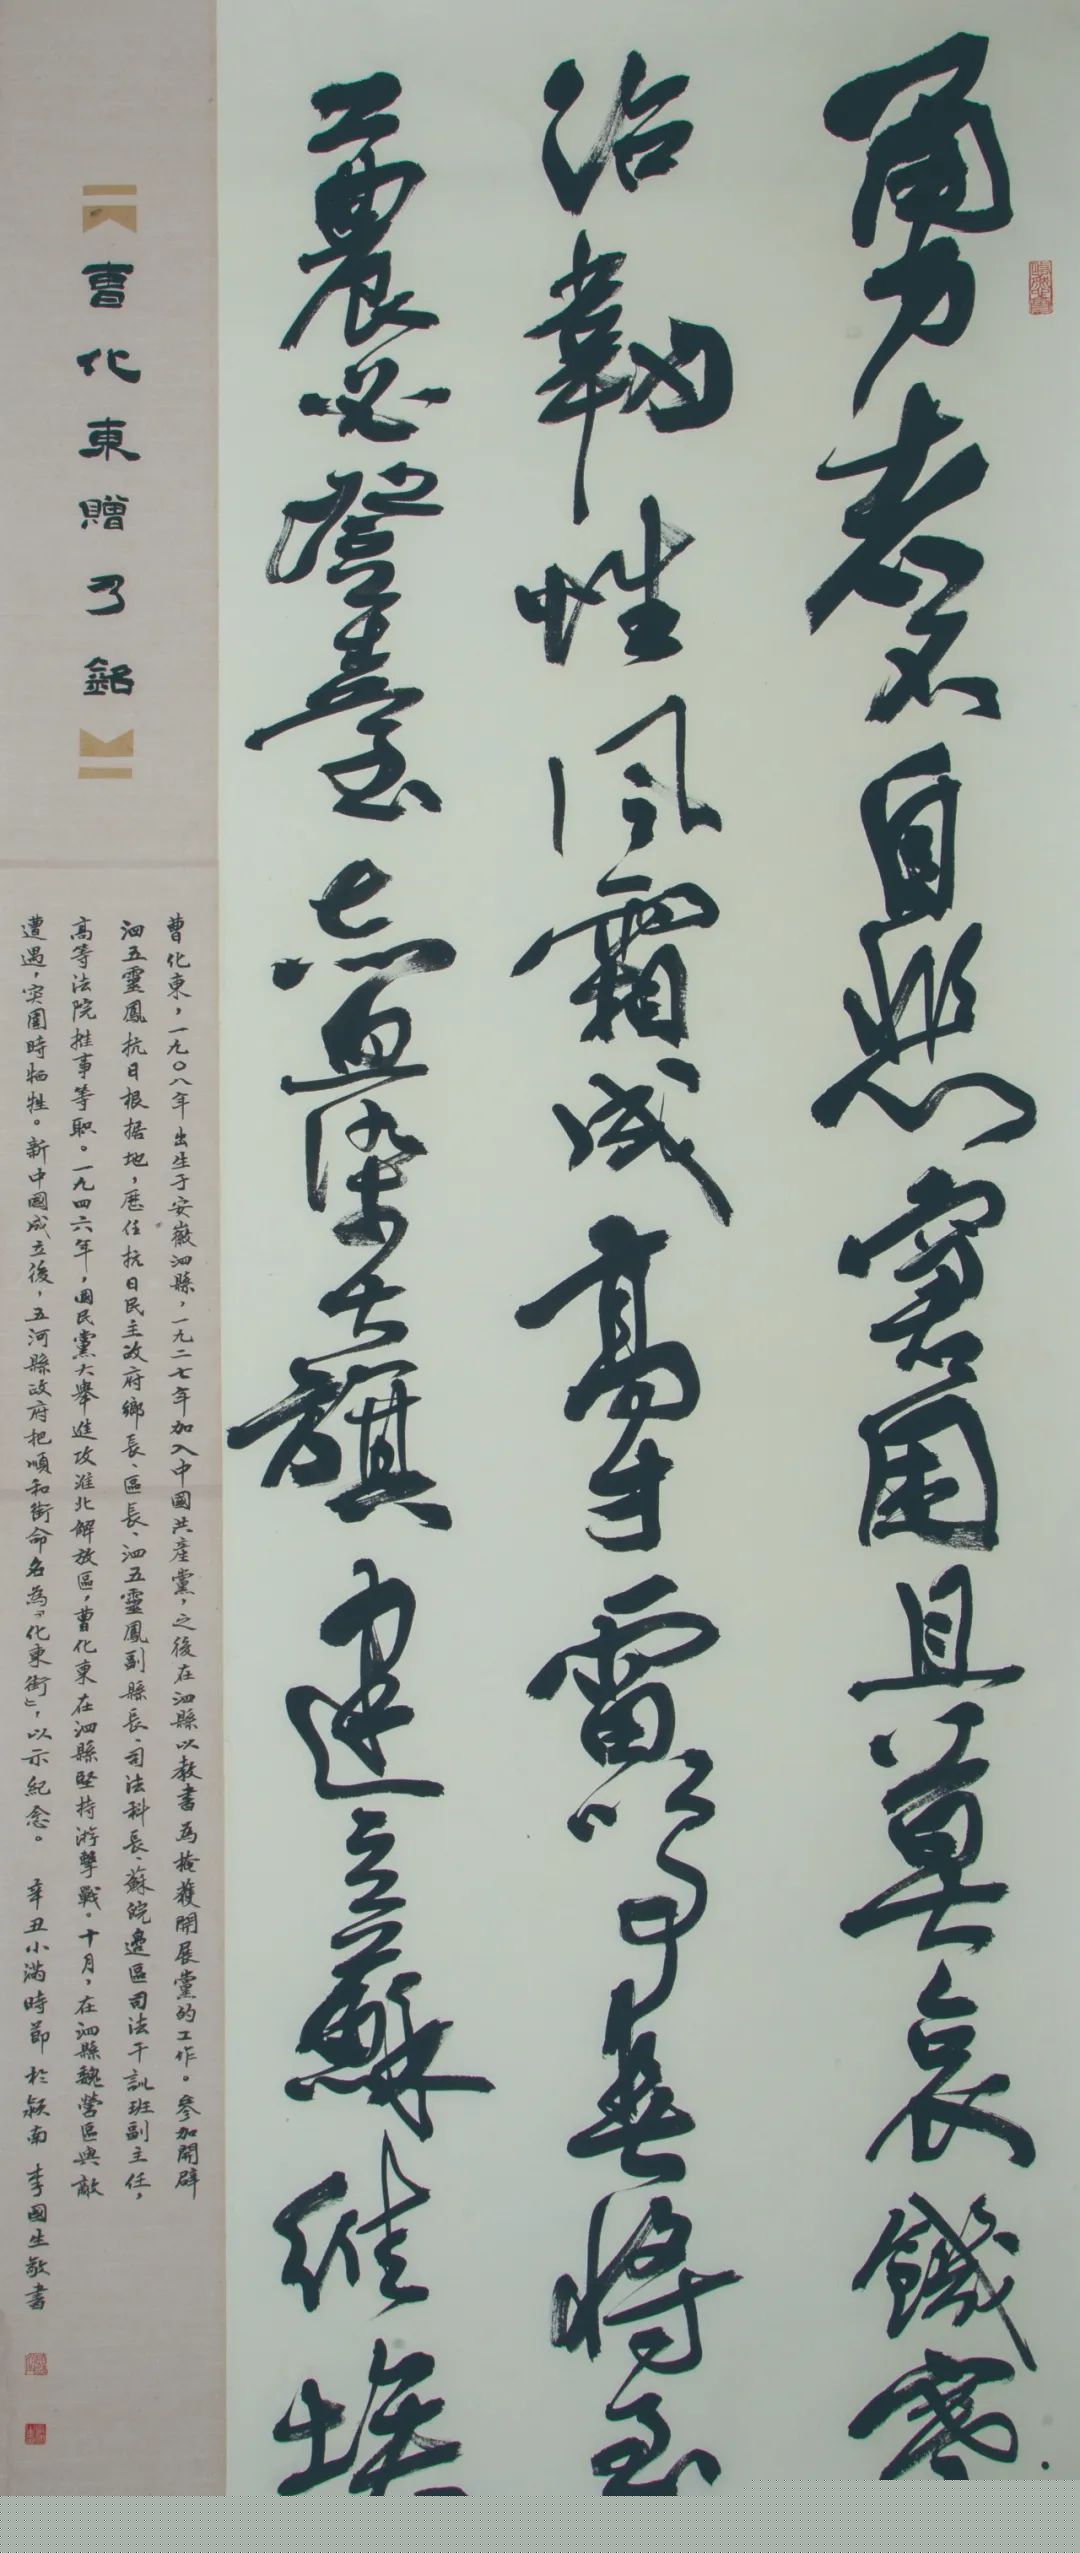 勇者不自悲窘困且莫哀饑寒
冶韌性風霜成高才雷鳴春將至
工農必登臺志血染大旗建立蘇維埃
曹化東贈乃銘
曹化東，一九〇八年出生于安徽泗縣，一九二七年加入中國共產黨，之後在泗縣以教書為掩護開展黨的工作。參加開辟
泗五靈鳳抗日根据地，歷任抗日民主政府鄉長、區長、泗五靈鳳副縣長、司法科長、蘇皖邊區司法干訓班副主任，
高等法院推事等職。一九四六年，國民黨大舉進攻淮北解放區，曹化東在泗縣堅持游擊戰。十月，在泗縣魏營區與敵
遭遇，突圍時牺牲。新中國成立後，五河縣政府把順和街命名為「化東街」，以示紀念。 辛丑小滿時節於潁南 李國生敬書